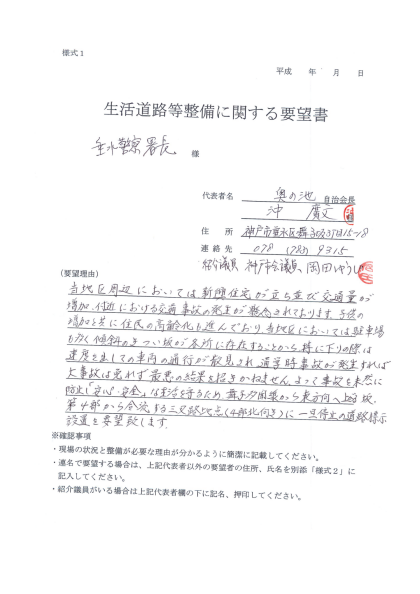 様式１
平成　年　月　日
生活道路等整備に関する要望書
垂水警察署長 様
代表者名 奥の池 自治会長
沖 廣文
住所 神戸市垂水区舞
連絡先 078 (783) 9315
紹介議員 神戸市会議員 岡田
(要望理由)
当地区周辺においては新興住宅が立ち並び交通量が
増加、付近における交通事故の発生が懸念されております 子供の
増加と共に住民の高齢化も進んでおり当地区においては駐車場
も多く傾斜のきつい坂が各所に存在することから特に下りの際は
速度を出しての車両の通行が散見され 通学時事故が発生すれば
大事故は免れず最悪の結果を招きかねません。よって事故を未然に
防止し「安心・安全」な生活を守るため から東方向へ上る坂、
第4部から合流する三叉路地点(4部北向き)に一旦停止の道路標示
設置を要望致します。
※確認事項
・現場の状況と整備が必要な理由が分かるように簡潔に記載してください。
・連名で要望する場合は、上記代表者以外の要望者の住所、氏名を別添「様式２」に
記入してください。
・紹介議員がいる場合は上記代表者欄の下に記名、押印してください。